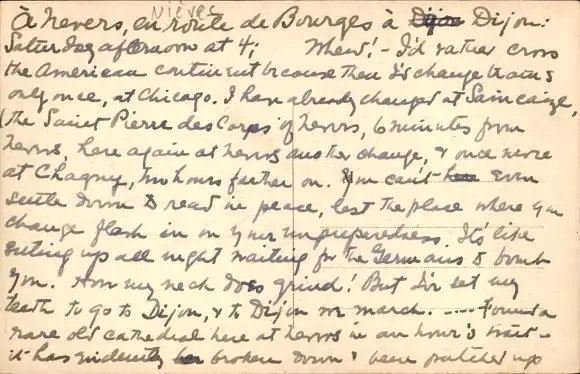 Nièvre
À Nevers, en route de Bourges à Dijon Dijon:
Saturday afternoon at 4; Whew! - I'd rather cross
the American continent because then I'd change trains
only once, at Chicago. I have already changed at Saincaize,
(the Saint Pierre des Corps of Nevers, 6 minutes from
Nevers, here again at Nevers another change, & once more
at Chagny, two hours farther on. You can't even
settle down to read in peace, lest the place where you
change flash in on your unpreparedness. It's like
sitting up all night waiting for the Germans to bomb
you. How my neck does grind! But I've set my
teeth to go to Dijon, & to Dijon we march. ..... Found a
rare old cathedral here at Nevers in an hour's wait -
it has evidently broken down & been patched up